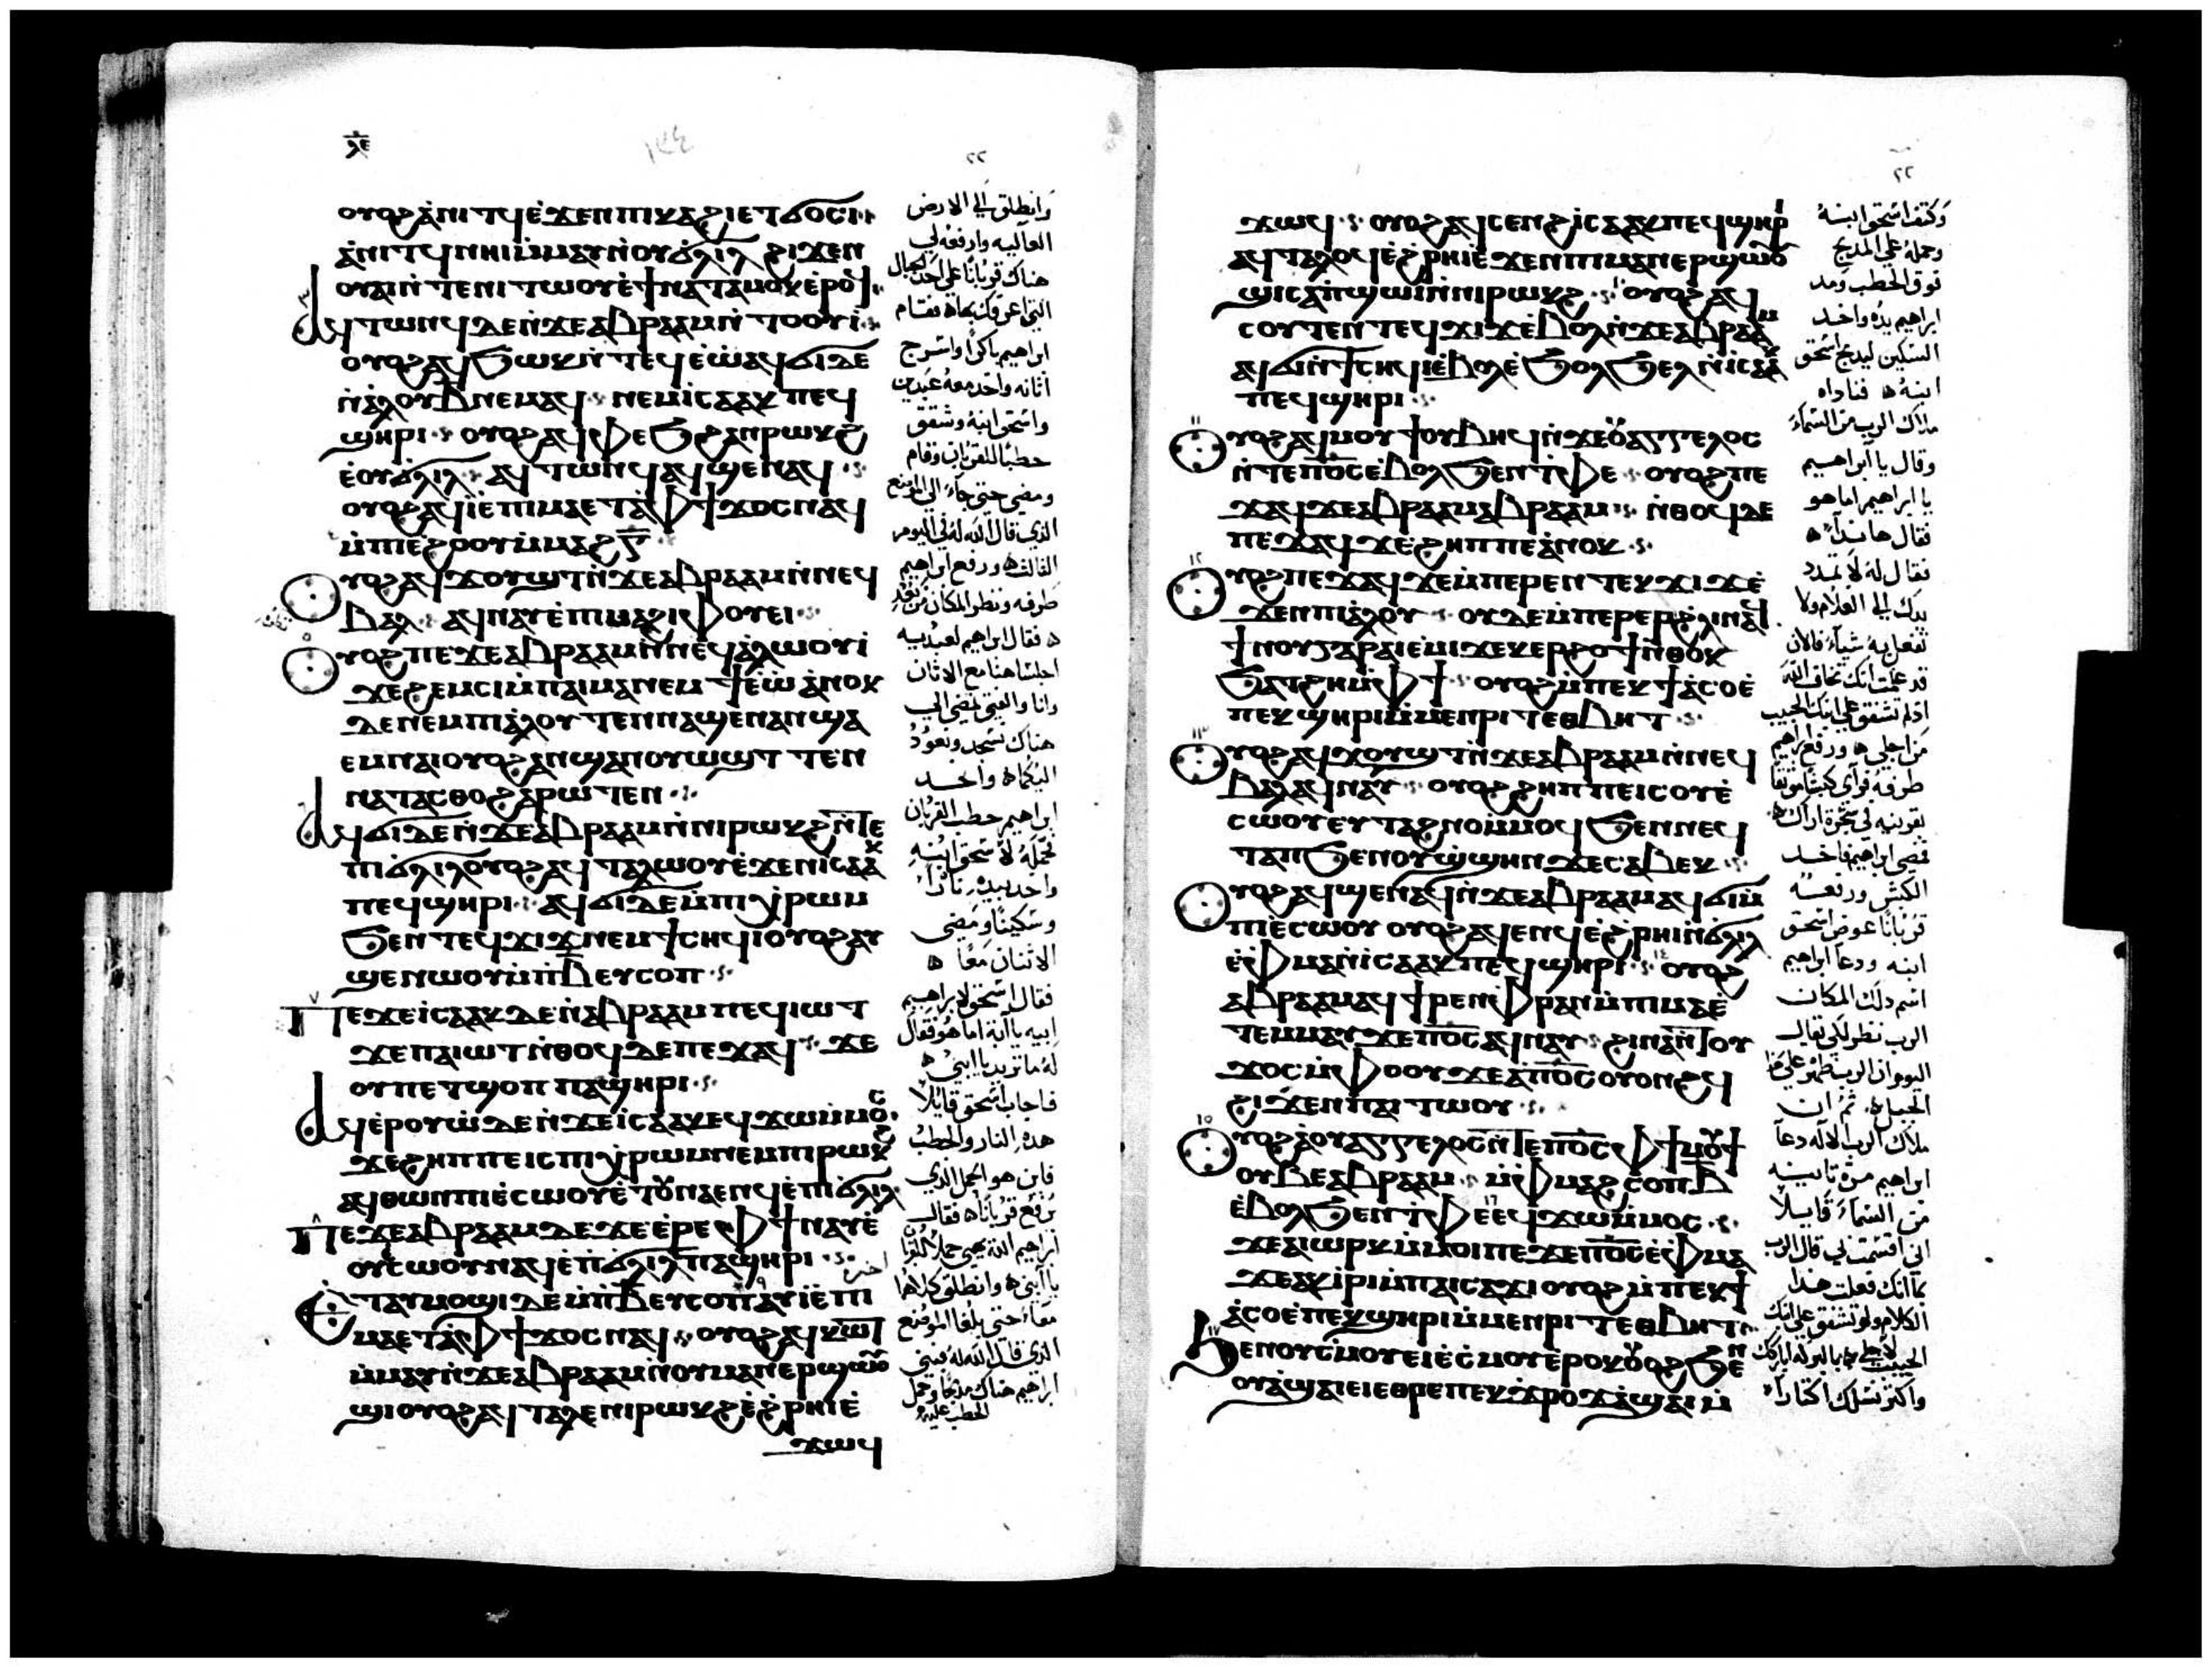 ⲗⲉ
١٣٤
٢٢
ⲟⲩⲟϩ ⲁⲛⲓⲧϥ ⲉϫⲉⲛ ⲡⲓⲕⲁϩⲓ ⲉⲧϭⲟⲥⲓ
ⲁⲛⲓⲧϥ ⲛⲏⲓ ⲙⲙⲁⲩ ⲛⲟⲩϭⲗⲓⲗ ϩⲓϫⲉⲛ
ⲟⲩⲁⲓ ⲛⲧⲉ ⲛⲓⲧⲱⲟⲩ ⲉϯⲛⲁⲧⲁⲙⲟⲕ ⲉⲣⲟϥ
ⲁϥⲧⲱⲛϥ ⲇⲉ ⲛϫⲉ ⲁⲃⲣⲁⲁⲙ ⲛⲧⲟⲟⲩⲓ
ⲟⲩⲟϩ ⲁϥϧⲱⲕ ⲛⲧⲉϥⲉⲱ ⲁϥϭⲓ ⲇⲉ
ⲛⲁⲗⲟⲩ ⲃ ⲛⲉⲙⲁϥ ⲛⲉⲙ ⲓⲥⲁⲁⲕ ⲡⲉϥ
ϣⲏⲣⲓ ⲟⲩⲟϩ ⲁϥⲫⲉϧ ϩⲁⲛⲣⲱⲕϩ
ⲉⲟⲩϭⲗⲓⲗ ⲁϥⲧⲱⲛϥ ⲁϥϣⲉⲛⲁϥ
ⲟⲩⲟϩ ⲁϥⲓ ⲉⲡⲓⲙⲁ ⲉⲧⲁ ⲫϯ ϫⲟⲥ ⲛⲁϥ
ⲙⲡⲉϩⲟⲟⲩ ⲙⲙⲁϩ ⲅ̅
ⲟⲩⲟϩ ⲁϥϫⲟⲩϣⲧ ⲛϫⲉ ⲁⲃⲣⲁⲁⲙ ⲛⲛⲉϥ
ⲃⲁⲗ ⲁϥⲛⲁⲩ ⲉⲡⲓⲙⲁ ϩⲓ ⲫⲟⲩⲉⲓ
ⲟⲩⲟϩ ⲡⲉϫⲉ ⲁⲃⲣⲁⲁⲙ ⲛⲛⲉϥⲁⲗⲱⲟⲩⲓ
ϫⲉ ϩⲉⲙⲥⲓ ⲙⲡⲁⲓⲙⲁ ⲛⲉⲙ ϯⲉⲱ ⲁⲛⲟⲕ
ⲇⲉ ⲛⲉⲙ ⲡⲓⲁⲗⲟⲩ ⲧⲉⲛⲛⲁϣⲉⲛⲁⲛ ϣⲁ
ⲉⲙⲛⲁⲓ ⲟⲩⲟϩ ⲁⲛϣⲁⲛⲟⲩⲱϣⲧ ⲧⲉⲛ
ⲛⲁⲧⲁⲥⲑⲟ ϩⲁⲣⲱⲧⲉⲛ
ⲁϥϭⲓ ⲇⲉ ⲛϫⲉ ⲁⲃⲣⲁⲁⲙ ⲛⲛⲓⲣⲱⲕϩ ⲛⲧⲉ
ⲡⲓϭⲗⲓⲗ ⲟⲩⲟϩ ⲁϥⲧⲁⲗⲱⲟⲩ ⲉϫⲉⲛ ⲓⲥⲁⲁⲕ
ⲡⲉϥϣⲏⲣⲓ ⲁϥϭⲓ ⲇⲉ ⲙⲡⲓⲭⲣⲱⲙ
ϧⲉⲛ ⲧⲉϥϫⲓϫ ⲛⲉⲙ ϯⲥⲏϥⲓ ⲟⲩⲟϩ ⲁⲩ
ϣⲉⲛⲱⲟⲩ ⲙⲡⲃ ⲉⲩⲥⲟⲡ
ⲡⲉϫⲉ ⲓⲥⲁⲁⲕ ⲇⲉ ⲛⲁⲃⲣⲁⲁⲙ ⲡⲉϥⲓⲱⲧ
ϫⲉ ⲡⲁⲓⲱⲧ ⲛⲑⲟϥ ⲇⲉ ⲡⲉϫⲁϥ ϫⲉ
ⲟⲩ ⲡⲉⲧϣⲟⲡ ⲡⲁϣⲏⲣⲓ
ⲁϥⲉⲣⲟⲩⲱ ⲇⲉ ⲛϫⲉ ⲓⲥⲁⲁⲕ ⲉϥϫⲱ ⲙⲙⲟⲥ
ϫⲉ ϩⲏⲡⲡⲉ ⲓⲥ ⲡⲓⲭⲣⲱⲙ ⲛⲉⲙ ⲡⲓⲣⲱⲕϩ
ⲁϥⲑⲱⲛ ⲡⲓⲉⲥⲱⲟⲩ ⲉⲧⲟⲩⲛⲁⲉⲛϥ ⲉⲡⲓϭⲗⲓⲗ
ⲡⲉϫⲉ ⲁⲃⲣⲁⲁⲙ ⲇⲉ ϫⲉ ⲉⲣⲉ ⲫϯ ⲛⲁⲩ ⲉ
ⲟⲩⲉⲥⲱⲟⲩ ⲛⲁϥ ⲉⲡϭⲗⲓⲗ ⲡⲁϣⲏⲣⲓ
ⲉⲧⲁⲩⲙⲟϣⲓ ⲇⲉ ⲙⲡⲃ ⲉⲩⲥⲟⲡ ⲁⲩⲓ ⲉⲡⲓ
ⲙⲁ ⲉⲧⲁ ⲫϯ ϫⲟⲥ ⲛⲁϥ ⲟⲩⲟϩ ⲁϥⲕⲱⲧ
ⲙⲙⲁⲩ ⲛϫⲉ ⲁⲃⲣⲁⲁⲙ ⲛⲟⲩⲙⲁⲛⲉⲣϣⲱⲟⲩ
ϣⲓ ⲟⲩⲟϩ ⲁϥⲧⲁⲗⲉ ⲛⲓⲣⲱⲕϩ ⲉϩⲣⲏⲓ ⲉ
ϫⲱϥ
وانطلق الى الارض
العاليه وارفعه لي
هناك قربانا على احد الجبال
التي اعرفك بها فقام
ابراهيم باكرا واسرج
اتانه واخد معه عبدين
واسحق ابنه وشقق
حطبا للقربان وقام
ومضى حتى جآء الى الموضع
الذي قال الله له في اليوم
الثالث ورفع ابراهيم
طرفه ونظر المكان من بعد
فقال ابراهيم لعبديه
اجلسا هنا مع الاتان
وانا والفتى نمضي الى
هناك نسجد ونعود
اليكما واخد
ابراهيم حطب القربان
فحمله لاسحق ابنه
واخد بيده نارا
وسكينا ومضى
الاثنان معا
فقال اسحق لابراهيم
ابيه يا ابة اما هو فقال
له ما تريد يا ابني
فاجاب اسحق قايلا
هذه النار والحطب
فاين هو الحمل الذي
يرفع قربانا فقال
ابراهيم الله يهيئ حملا للقربان
يا ابني وانطلق كلاهما
معا حتى بلغا الموضع
الذي قال الله له فبنى
ابراهيم هناك مذبحا وحمل
الحطب عليه
٢٢
ϫⲱϥ ⲟⲩⲟϩ ⲁϥⲥⲉⲛϩ ⲓⲥⲁⲁⲕ ⲡⲉϥϣⲏⲣⲓ
ⲁϥⲧⲁⲗⲟϥ ⲉϩⲣⲏⲓ ⲉϫⲉⲛ ⲡⲓⲙⲁⲛⲉⲣϣⲱⲟⲩ
ϣⲓ ⲥⲁⲡϣⲱⲓ ⲛⲛⲓⲣⲱⲕϩ ⲟⲩⲟϩ ⲁϥ
ⲥⲟⲩⲧⲉⲛ ⲧⲉϥϫⲓϫ ⲉⲃⲟⲗ ⲛϫⲉ ⲁⲃⲣⲁⲁⲙ
ⲁϥϭⲓ ⲛϯⲥⲏϥⲓ ⲉⲃⲟⲗ ⲉϧⲟⲗϧⲉⲗ ⲛⲓⲥⲁⲁⲕ
ⲡⲉϥϣⲏⲣⲓ
ⲟⲩⲟϩ ⲁϥⲙⲟⲩϯ ⲟⲩⲃⲏϥ ⲛϫⲉ ⲟⲩⲁⲅⲅⲉⲗⲟⲥ
ⲛⲧⲉ ⲡⲟ̅ⲥ̅ ⲉⲃⲟⲗ ϧⲉⲛ ⲧⲫⲉ ⲟⲩⲟϩ ⲡⲉ
ϫⲁϥ ϫⲉ ⲁⲃⲣⲁⲁⲙ ⲁⲃⲣⲁⲁⲙ ⲛⲑⲟϥ ⲇⲉ
ⲡⲉϫⲁϥ ϫⲉ ϩⲏⲡⲡⲉ ⲁⲛⲟⲕ
ⲟⲩⲟϩ ⲡⲉϫⲁϥ ϫⲉ ⲙⲡⲉⲣⲉⲛ ⲧⲉⲕϫⲓϫ ⲉ
ϫⲉⲛ ⲡⲓⲁⲗⲟⲩ ⲟⲩⲇⲉ ⲙⲡⲉⲣⲉⲣ ϩⲗⲓ ⲛⲁϥ
ϯⲛⲟⲩ ⲅⲁⲣ ⲁⲓⲉⲙⲓ ϫⲉ ⲕⲉⲣϩⲟϯ ⲛⲑⲟⲕ
ϧⲁⲧϩⲏ ⲙⲫϯ ⲟⲩⲟϩ ⲙⲡⲉⲕϯⲁⲥⲟ ⲉ
ⲡⲉⲕϣⲏⲣⲓ ⲙⲙⲉⲛⲣⲓⲧ ⲉⲑⲃⲏⲧ
ⲟⲩⲟϩ ⲁϥϫⲟⲩϣⲧ ⲛϫⲉ ⲁⲃⲣⲁⲁⲙ ⲛⲛⲉϥ
ⲃⲁⲗ ⲁϥⲛⲁⲩ ⲟⲩⲟϩ ϩⲏⲡⲡⲉ ⲓⲥ ⲟⲩⲉ
ⲥⲱⲟⲩ ⲉⲩⲧⲁϩⲛⲟ ⲙⲙⲟϥ ϧⲉⲛ ⲛⲉϥ
ⲧⲁⲡ ϧⲉⲛ ⲟⲩϣϣⲏⲛ ϫⲉ ⲥⲁⲃⲉⲕ
ⲟⲩⲟϩ ⲁϥϣⲉⲛⲁϥ ⲛϫⲉ ⲁⲃⲣⲁⲁⲙ ⲁϥϭⲓ ⲙ
ⲡⲓⲉⲥⲱⲟⲩ ⲟⲩⲟϩ ⲁϥⲉⲛϥ ⲉϩⲣⲏⲓ ⲛϭⲗⲓⲗ
ⲉⲫⲙⲁ ⲛⲓⲥⲁⲁⲕ ⲡⲉϥϣⲏⲣⲓ ⲟⲩⲟϩ
ⲁⲃⲣⲁⲁⲙ ⲁϥϯⲣⲉⲛ ⲫⲣⲁⲛ ⲙⲡⲓⲙⲁ ⲉ
ⲧⲉⲙⲙⲁⲩ ϫⲉ ⲡⲟ̅ⲥ̅ ⲁϥⲛⲁⲩ ϩⲓⲛⲁ ⲛⲧⲟⲩ
ϫⲟⲥ ⲙⲫⲟⲟⲩ ϫⲉ ⲁⲡⲟ̅ⲥ̅ ⲟⲩⲟⲛϩϥ
ϩⲓϫⲉⲛ ⲡⲁⲓⲧⲱⲟⲩ
ⲟⲩⲟϩ ⲁⲟⲩⲁⲅⲅⲉⲗⲟⲥ ⲛⲧⲉ ⲡⲟ̅ⲥ̅ ⲫϯ ⲙⲟⲩϯ
ⲟⲩⲃⲉ ⲁⲃⲣⲁⲁⲙ ⲙⲫⲙⲁϩ ⲥⲟⲡ ⲃ
ⲉⲃⲟⲗ ϧⲉⲛ ⲧⲫⲉ ⲉϥϫⲱ ⲙⲙⲟⲥ
ϫⲉ ⲁⲓⲱⲣⲕ ⲙⲙⲟⲓ ⲡⲉϫⲉ ⲡⲟ̅ⲥ̅ ⲉⲫⲙⲁ
ϫⲉ ⲁⲕⲓⲣⲓ ⲙⲡⲁⲓⲥⲁϫⲓ ⲟⲩⲟϩ ⲙⲡⲉⲕϯ
ⲁⲥⲟ ⲉⲡⲉⲕϣⲏⲣⲓ ⲙⲙⲉⲛⲣⲓⲧ ⲉⲑⲃⲏⲧ
ϧⲉⲛ ⲟⲩⲥⲙⲟⲩ ⲉⲓⲉⲥⲙⲟⲩ ⲉⲣⲟⲕ ⲟⲩⲟϩ ϧⲉⲛ
ⲟⲩⲁϣⲁⲓ ⲉⲓⲉⲑⲣⲉ ⲡⲉⲕϫⲣⲟϫ ⲁϣⲁⲓ ⲙ
وكتف اسحق ابنه
وحمله على المذبح
فوق الحطب ومد
ابراهيم يده واخد
السكين ليذبح اسحق
ابنه فناداه
ملاك الرب من السمآء
وقال يا ابراهيم
يا ابراهيم اما هو
فقال هانذا
فقال له لا تمدد
يدك الى الغلام ولا
تفعل به شيآء فالان
قد علمت انك تخاف الله
اذ لم تشفق على ابنك الحبيب
من اجلي ورفع ابراهيم
طرفه فرآى كبشا موثقا
بقرنيه في شجرة اراك
فمضى ابراهيم فاخد
الكبش ورفعه
قربانا عوض اسحق
ابنه ودعا ابراهيم
اسم ذلك المكان
الرب نظر لكي يقال
اليوم ان الرب ظهر على هذا
الجبل ثم ان
ملاك الرب الاله دعا
ابراهيم مرة ثانيه
من السماء قايلا
اني اقسمت بي قال الرب
بما انك فعلت هذا
الكلام ولم تشفق على ابنك
الحبيب لاجلي بالبركة اباركك
واكثر نسلك اكثارا